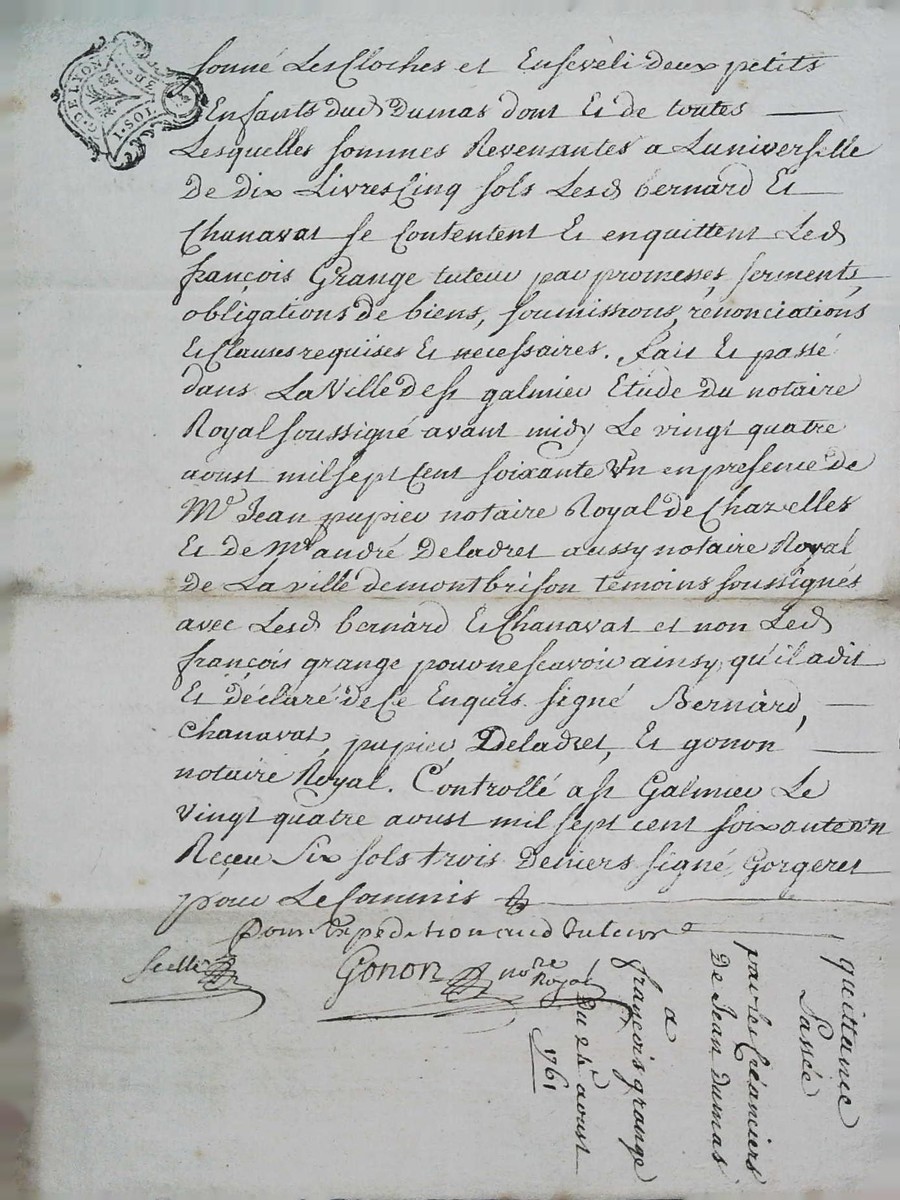 G. DE LYON
I. SOL
sonné Les Cloches et Enseveli deux petits
Enfants dud Dumas dont Et de toutes
Lesquelles sommes Revenantes a Luniverselle
De dix Livres Cinq sols Lesd bernard Et
Chanavat se Contentent Et enquittent Led
françois Grange tuteur par promesses, serments,
obligations de biens, soumissions, renonciations
Et Clauses requises Et necessaires. fait Et passé
dans La Ville de st galmier Etude Du notaire
Royal soussigné avant midy Le vingt quatre
aoust mil sept Cent soixante Un en presence de
Me Jean pupier notaire Royal de Chazelles
Et de Me andré Deladret aussy notaire Royal
De La ville de montbrison temoins soussignés
avec Lesd bernard Et Chanavat et non Led
françois grange pour ne scavoir ainsy, qu'il a dit
Et Déclaré de Ce Enquis. signé Bernard,
Chanavat, pupier Deladret, Et gonon
notaire Royal. Controllé a st Galmier Le
Vingt quatre aoust mil sept cent soixante Un
Reçeu Six sols trois Deniers signé Gorgeret
pour Le Commis
Pour Expedition aud tuteur
scellé
Gonon nore Royal
quittance
Passée
par les Créanciers
De Jean dumas
a
françois grange
Du 24e aoust
1761